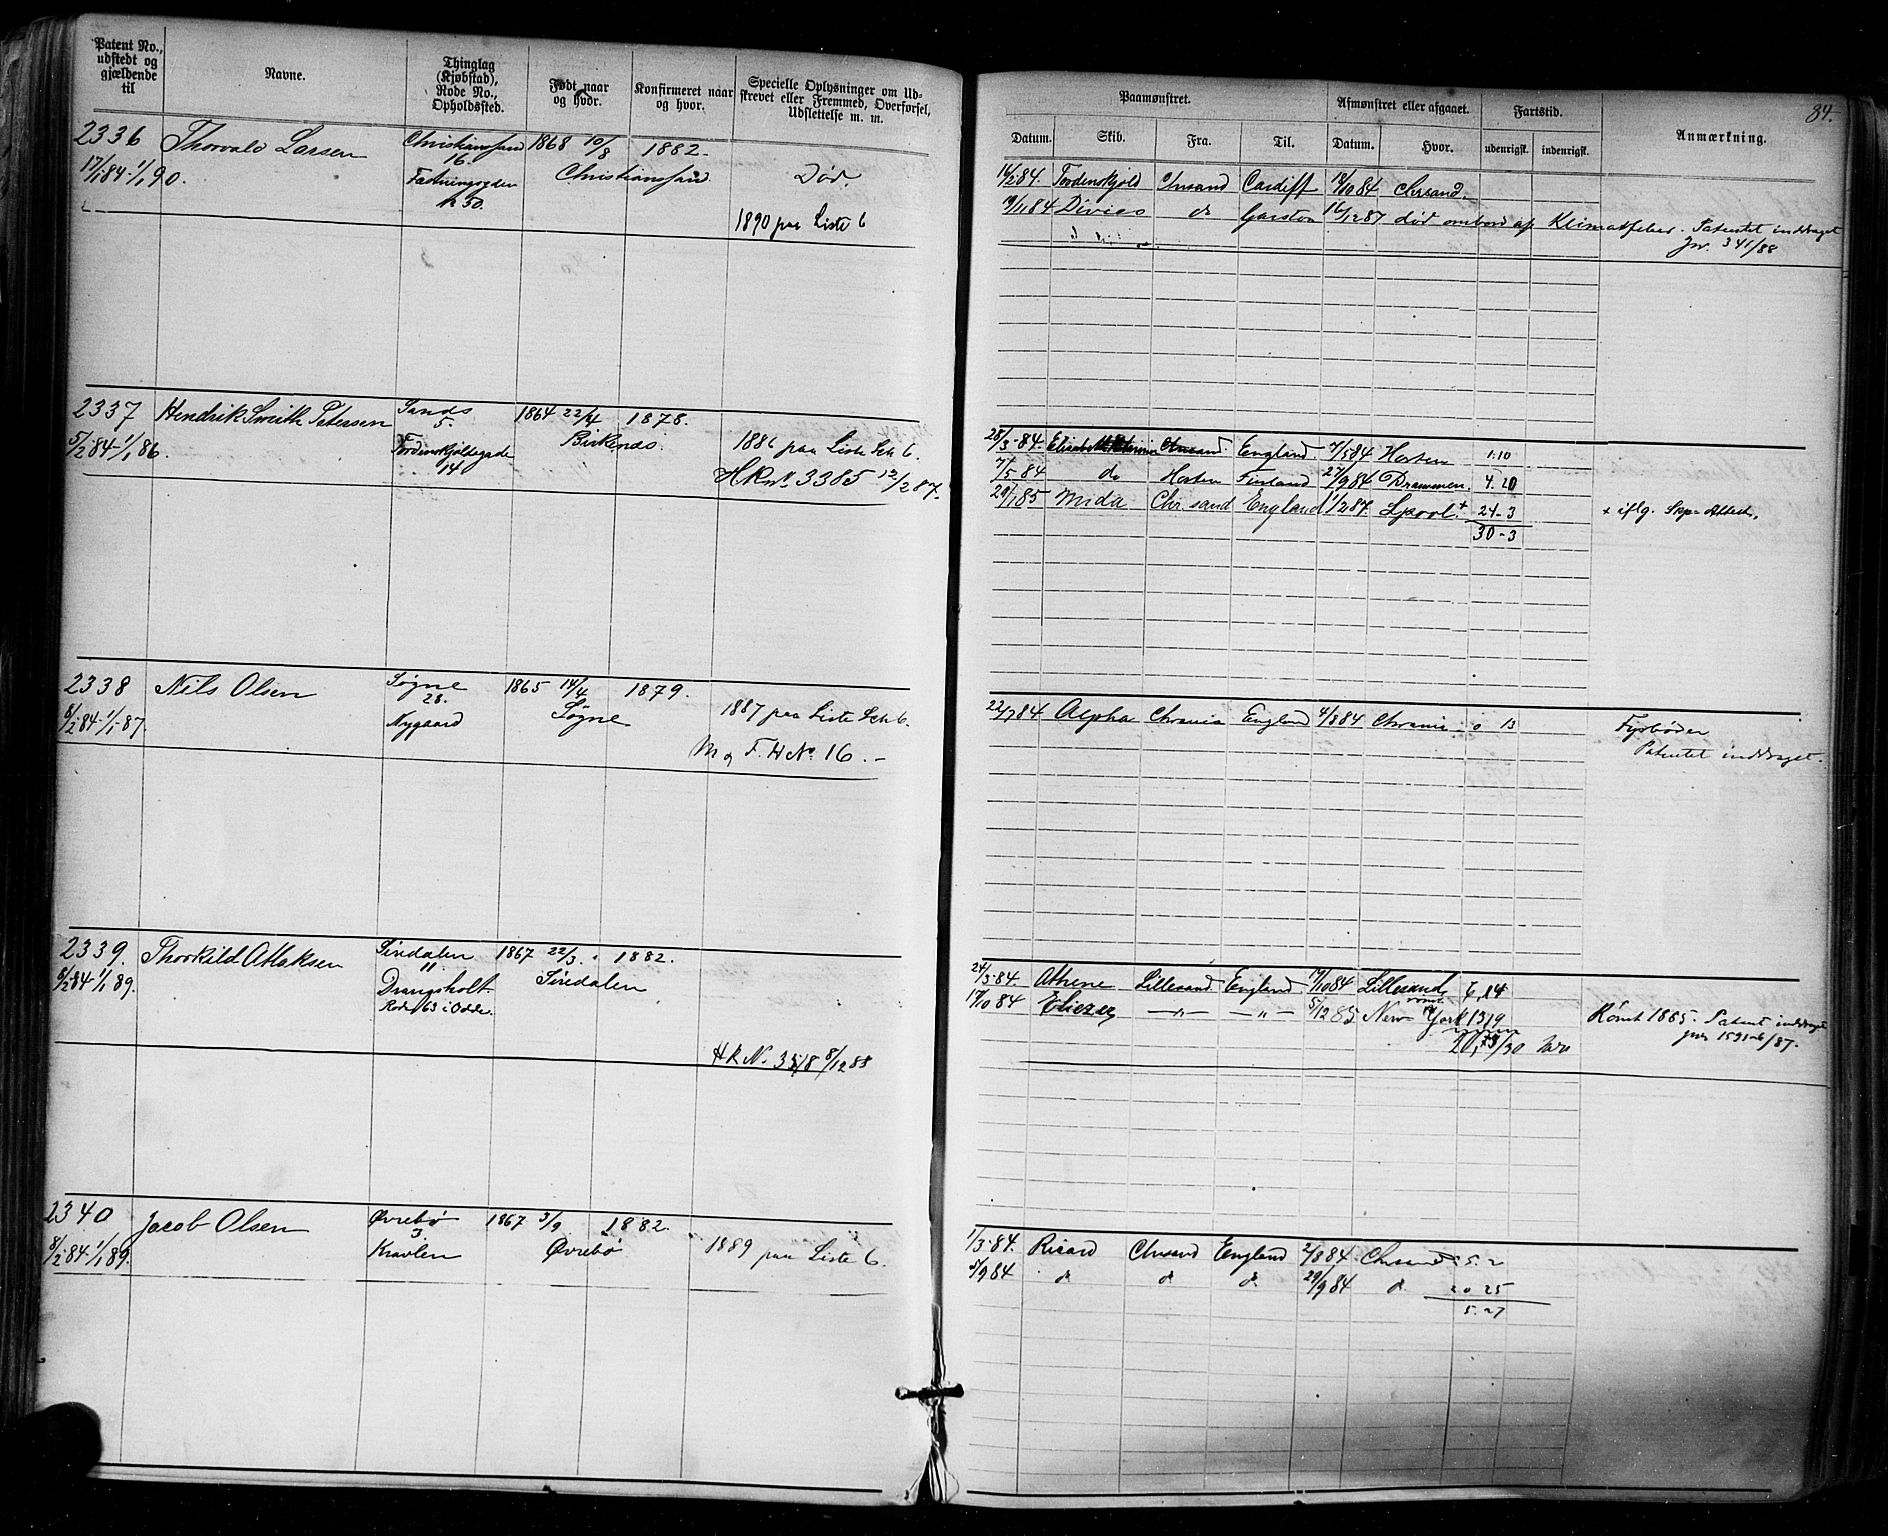 Patent No., udstedt og gjældende til
Navne.
Thinglag (Kjøbstad), Rode No., Opholdssted.
Født naar og hvor.
Konfirmeret naar og hvor.
Specielle Oplysninger om Udskrevet eller Fremmed, Overførsel, Udslettelse m. m.
2336 Thorvald Larsen Christianssand 1868 10/8 1882.
16.
17/1 84-1/1 90. Christianssand. Død.
No 50.
1890 paa Liste 6
2337 Hendrik Smith Petersen Sands 1864 22/4 1878.
5.
5/2 84-1/1 86. Tordenskjoldsgade Birkenæs 1886 paa Liste Sch 6.
14
HR No 3385 12/2 87.
2338 Nils Olsen Søgne 1865 14/4 1879.
28.
8/2 84-1/1 87. Nygaard Søgne 1887 paa Liste Sch 6.
M og F. H No. 16.-
2339. Thorkild Aslaksen Siredalen 1867 22/3. 1882.
11
8/2 84 1/1 89. Drangsholt Siredalen
Rode 63 i Odde.
HR No. 3518 8/12 88
2340 Jacob Olsen Øvrebø 1867 3/9 1882.
3
8/2 84-1/1 89. Kravlen Øvrebø 1889 paa Liste 6.
84.
Paamønstret.
Afmønstret eller afgaaet.
Fartstid.
Anmærkning.
Datum. Skib. Fra. Til. Datum. Hvor. udenrigsk. indenrigsk.
16/2 84. Tordenskjold Chrsand Cardiff 18/10 84 Chrsand.
19/11 84 do Garston 16/12 87 død ombord af Klimatfeber. Patentet inddraget
Jnr. 341/88
28/3-84. Elisabeth Chrsand England 7/5 84 Horten 1.10
7/5 84 do Horten Finland 27/9 84 Drammen. 4.20
20/1 85 Mida Chr.sand England 1/2 87. Lpool + 24-3 + iflg. Skp-Attest.
30-3
22/7 84 Alpha Chrania England 4/8 84 Chrania 0 13 Fyrbøder
Patentet inddraget.
24/3 84. Athene Lillesand England 17/10 84 Lillesand 6,14
17/10 84 Eliezer -"- -"- 5/12 85 New York 1319 Rømt 1885. Patent inddraget
rømt
jnr 1591-6/87.
1/3-84. Ricard Chrsand England 2/8 84 Chrsand 5.2
5/9 84 do do do 29/9 84 do 0 25
5.27